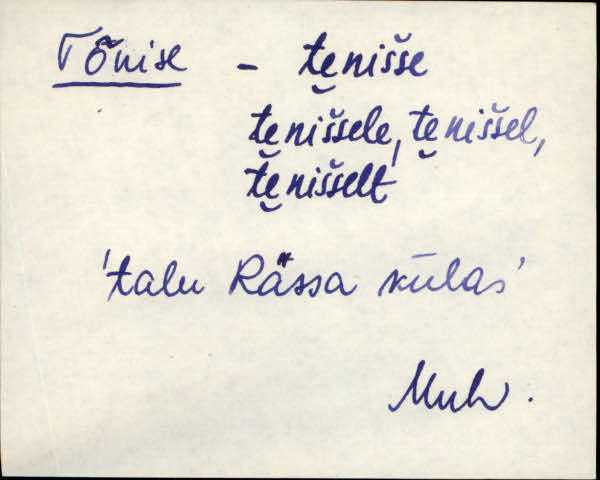 Tõnise - te̮nišše
te̮niššele, te̮niššel,
te̮niššelt
'talu Rässa külas'
Muh.